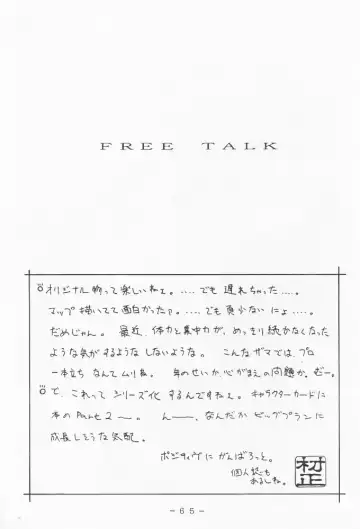 FREE TALK
オリジナル物って楽しいねェ。‥‥でも遅れちゃった‥‥。
マップ描いてて面白かったァ。‥‥でも頁少ないにょ‥‥。
だめじゃん。最近、体力と集中力が、めっきり続かなくなった
ような気がするような しないような。こんなザマでは、プロ
一本立ちなんてムリね。年のせいか心がまえの問題か、むー。
で、これってシリーズ化するんですねェ。キャラクターカードに
本のPart2ー。んー、なんだか ビッグプランに
成長しそうな気配。
ポジティヴにがんばろっと。
個人誌も
あるしね。
村正
-65-